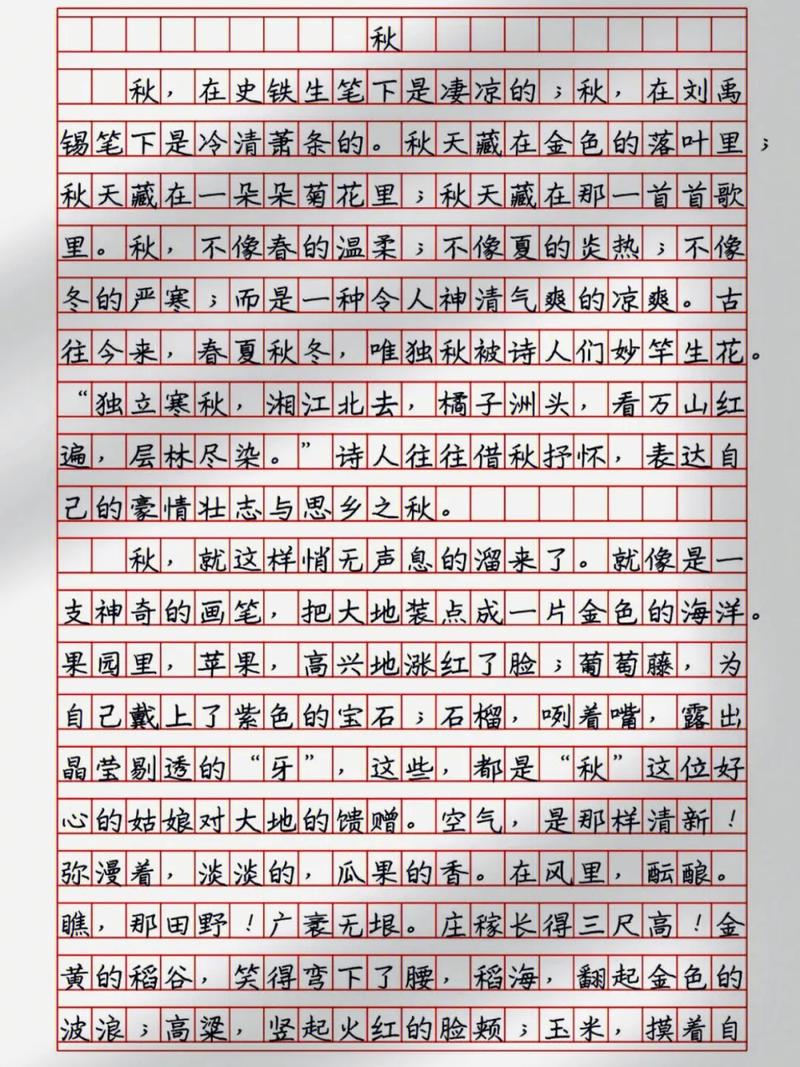 秋
秋，在史铁生笔下是凄凉的；秋，在刘禹
锡笔下是冷清萧条的。秋天藏在金色的落叶里；
秋天藏在一朵朵菊花里；秋天藏在那一首首歌
里。秋，不像春的温柔；不像夏的炎热；不像
冬的严寒；而是一种令人神清气爽的凉爽。古
往今来，春夏秋冬，唯独秋被诗人们妙竿生花。
“独立寒秋，湘江北去，橘子洲头，看万山红
遍，层林尽染。”诗人往往借秋抒怀，表达自
己的豪情壮志与思乡之秋。
秋，就这样悄无声息的溜来了。就像是一
支神奇的画笔，把大地装点成一片金色的海洋。
果园里，苹果，高兴地涨红了脸；葡萄藤，为
自己戴上了紫色的宝石；石榴，咧着嘴，露出
晶莹剔透的“牙”，这些，都是“秋”这位好
心的姑娘对大地的馈赠。空气，是那样清新！
弥漫着，淡淡的，瓜果的香。在风里，酝酿。
瞧，那田野！广袤无垠。庄稼长得三尺高！金
黄的稻谷，笑得弯下了腰，稻海，翻起金色的
波浪；高粱，竖起火红的脸颊；玉米，摸着自